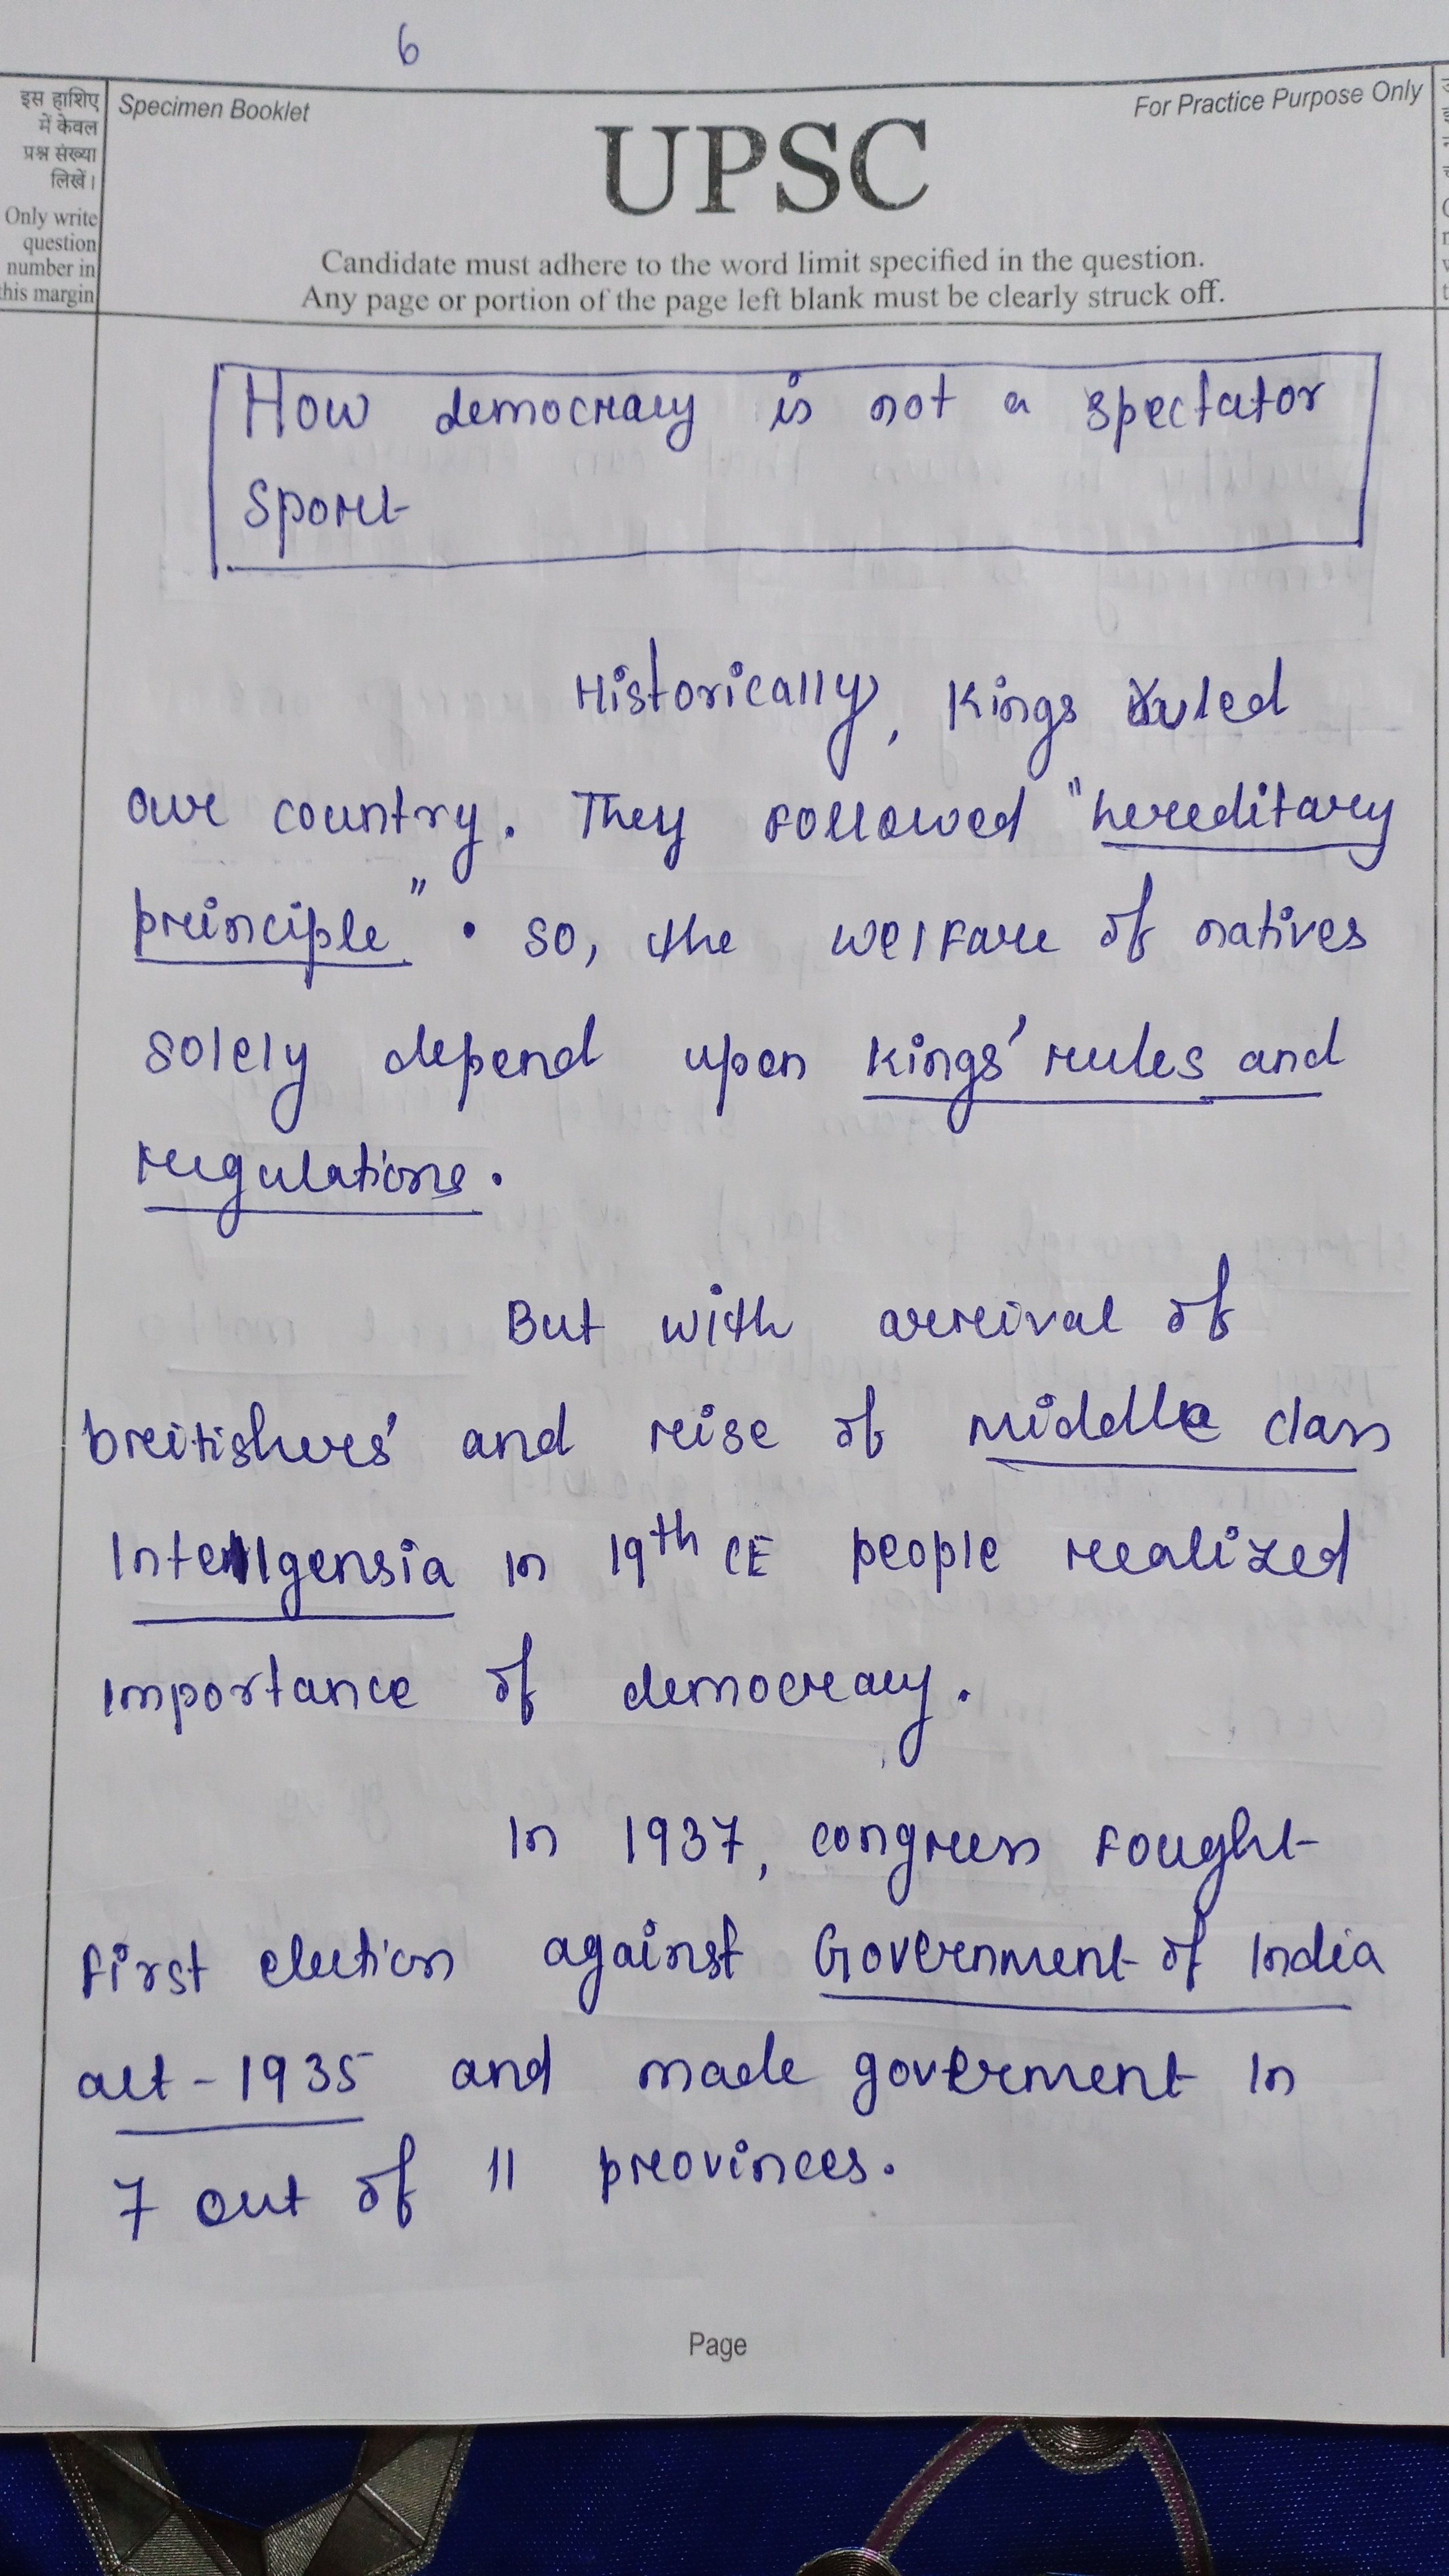 6
इस हाशिए
में केवल
प्रश्न संख्या
लिखें।
Only write
question
number in
this margin
Specimen Booklet
For Practice Purpose Only
UPSC
Candidate must adhere to the word limit specified in the question.
Any page or portion of the page left blank must be clearly struck off.
How democracy is not a spectator
sport
Historically, Kings ruled
our country. They followed "hereditary
principle". So, the welfare of natives
solely depend upon Kings' rules and
regulations.
But with arrival of
britishers' and rise of middle class
Intelligensia in 19th CE people realized
importance of democracy.
In 1937, congress fought
first election against Government of India
act - 1935 and made goverment in
7 out of 11 provinces.
Page